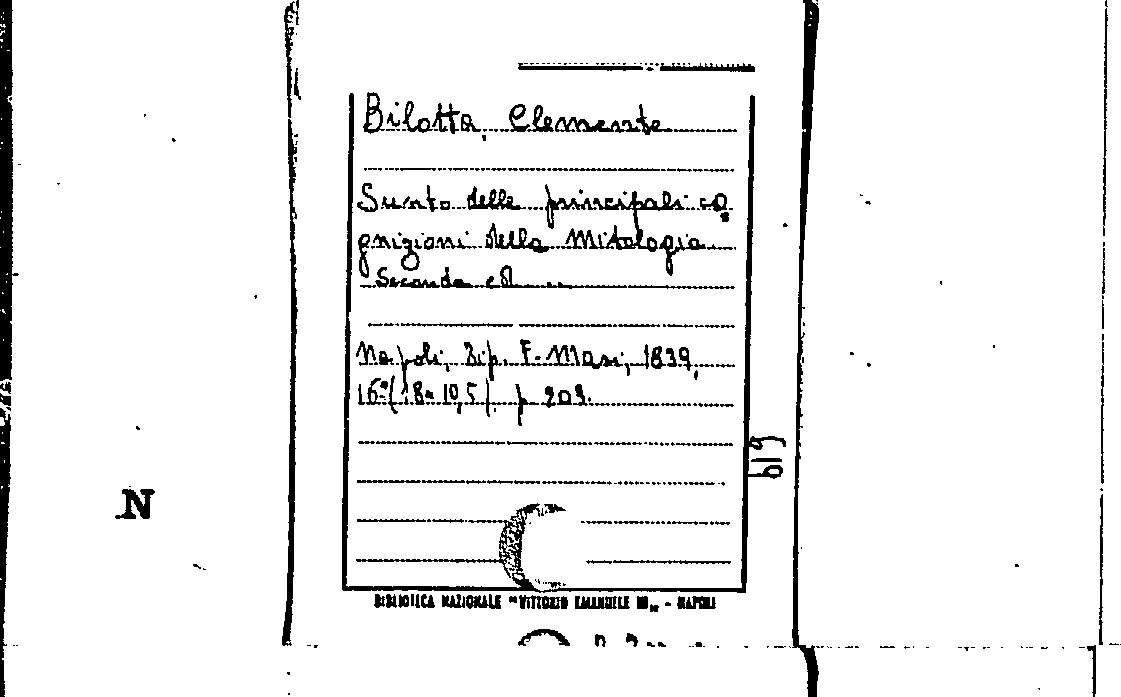 Bilotta, Clemente
Sunto delle principali co
gnizioni della Mitologia
Seconda ed.
Napoli, Tip. F. Masi, 1839,
16° (18 x 10,5). p 203.
619
N
BIBLIOTECA NAZIONALE "VITTORIO EMANUELE III" - NAPOLI